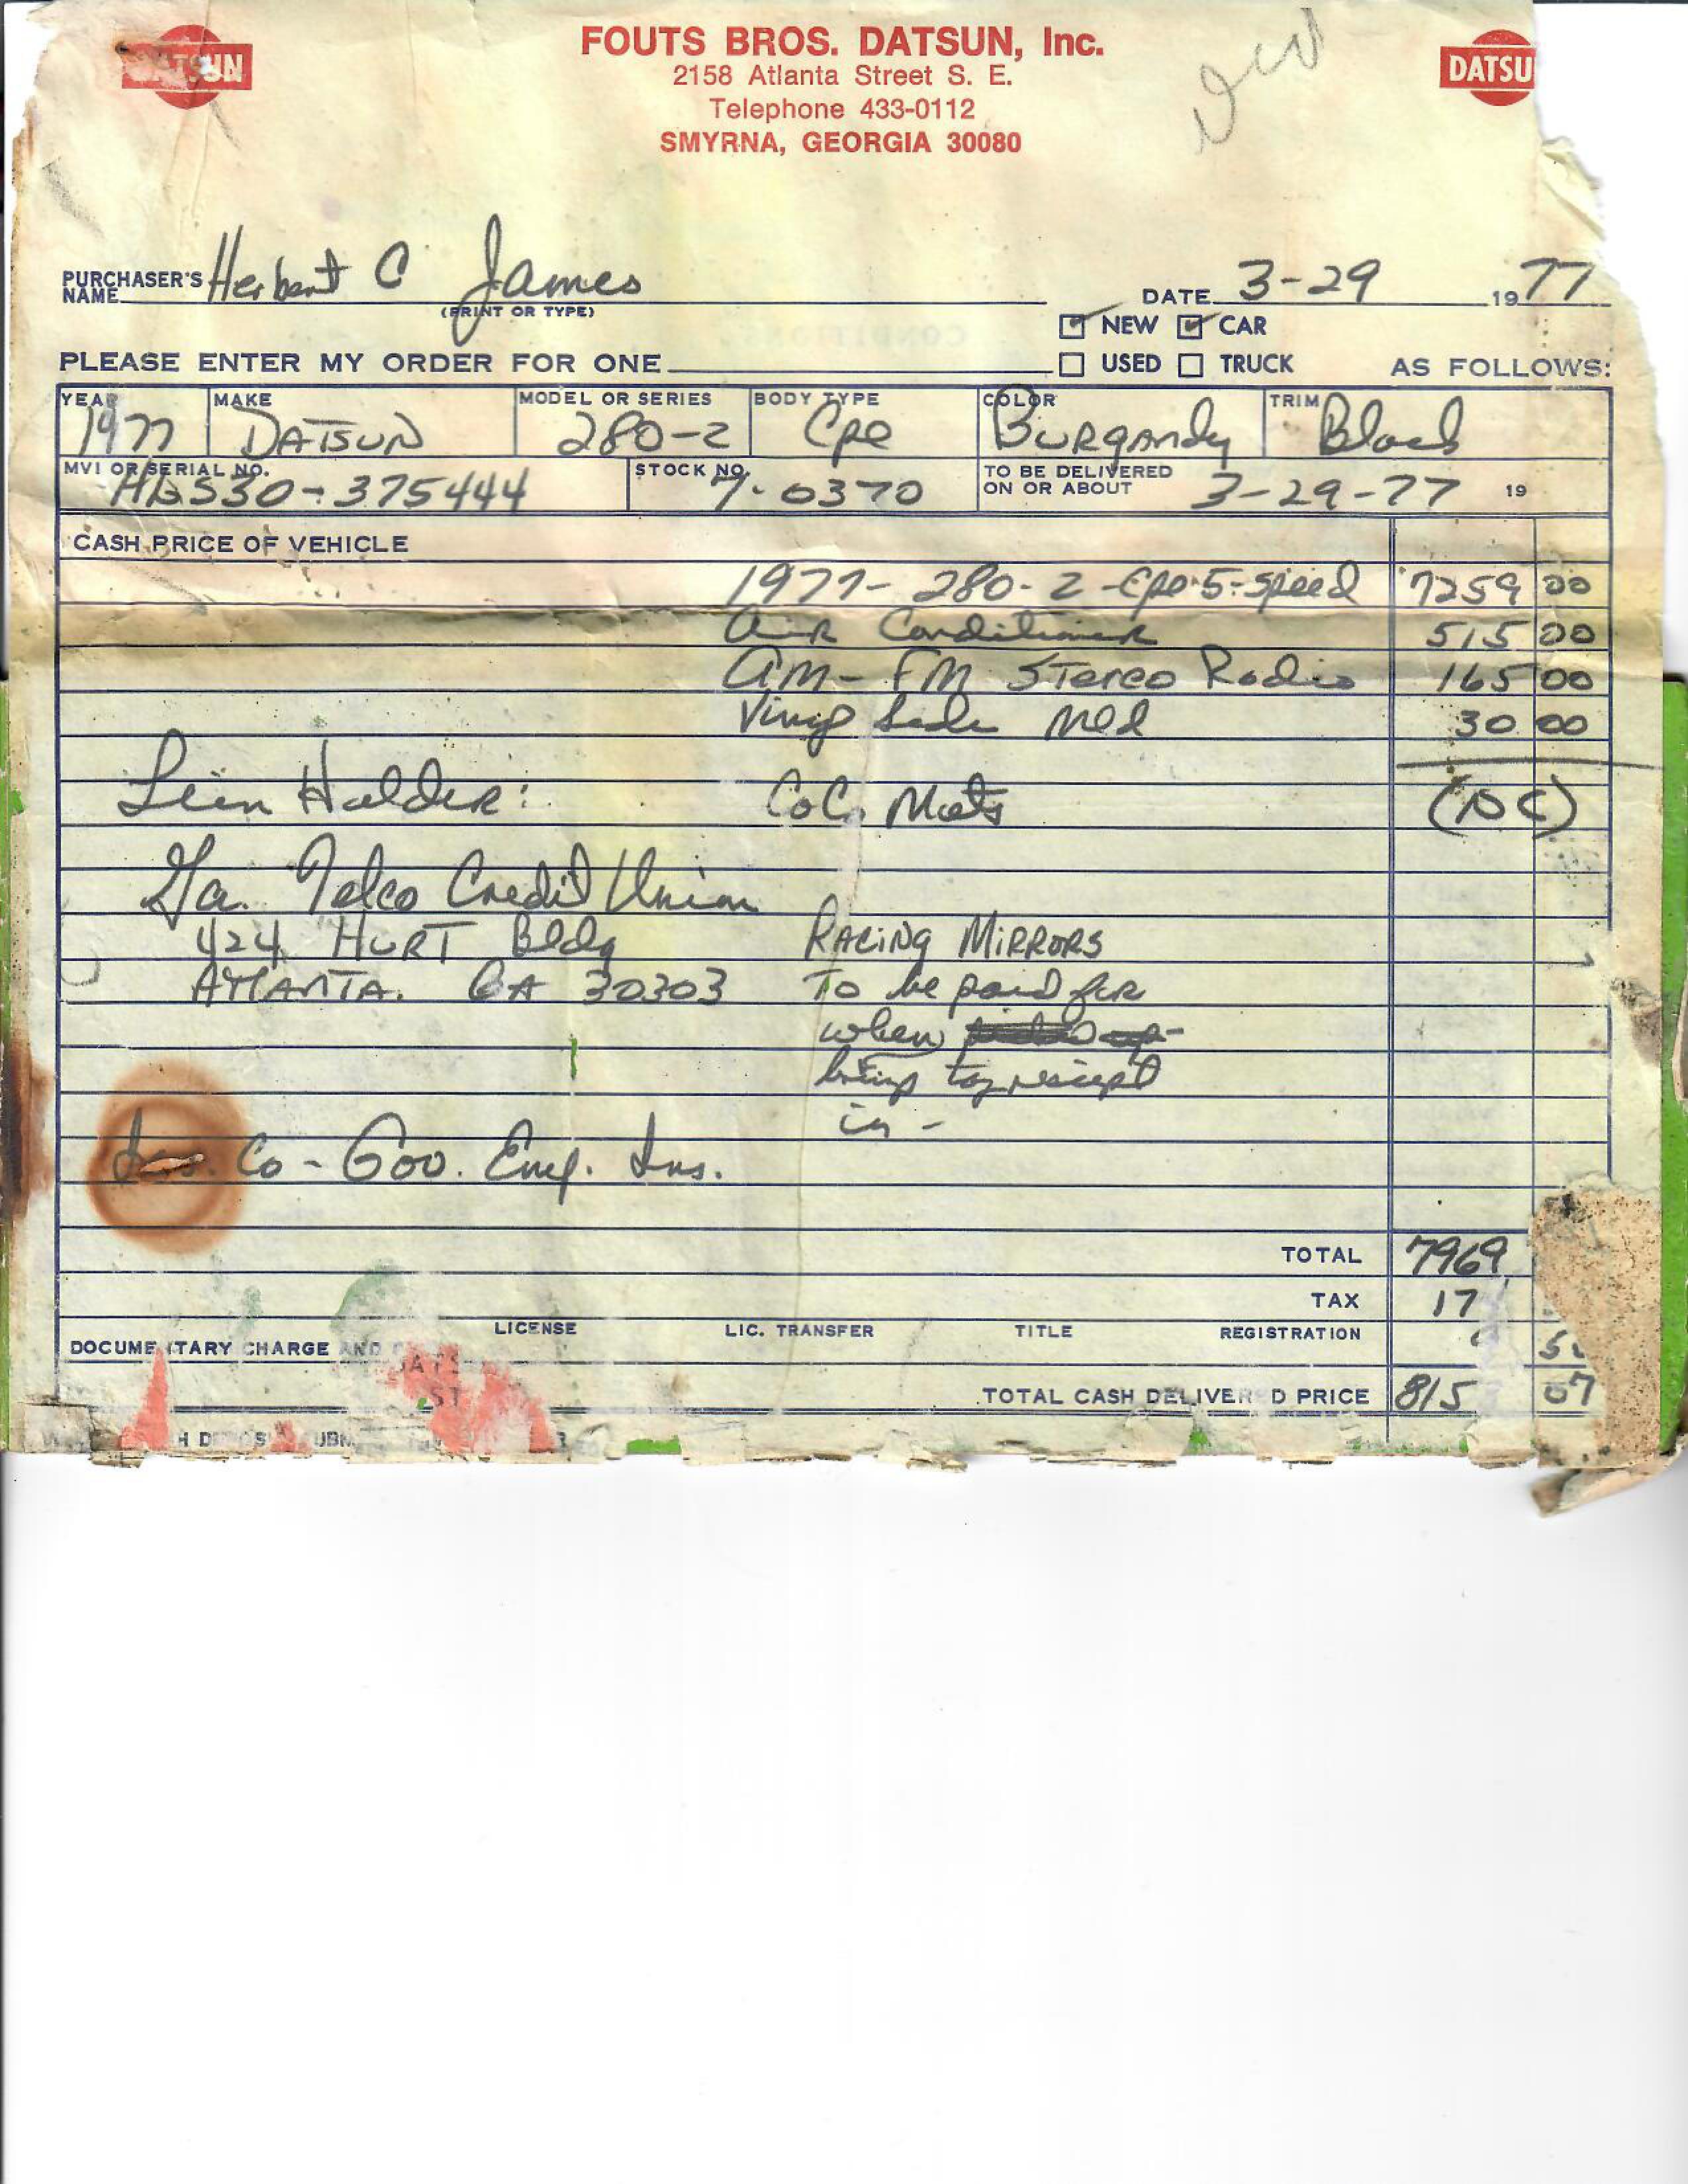 DATSUN
FOUTS BROS. DATSUN, Inc.
2158 Atlanta Street S. E.
Telephone 433-0112
SMYRNA, GEORGIA 30080
DATSU
PURCHASER'S NAME Herbert C James
(PRINT OR TYPE)
DATE 3-29 1977
NEW CAR
PLEASE ENTER MY ORDER FOR ONE USED TRUCK AS FOLLOWS:
YEAR MAKE MODEL OR SERIES BODY TYPE COLOR TRIM
1977 DATSUN 280-Z Cpe BURGANdy Black
MVI OR SERIAL NO. STOCK NO. TO BE DELIVERED ON OR ABOUT
HLS30-375444 7-0370 3-29-77 19
CASH PRICE OF VEHICLE
1977-280-Z-Cpe-5-Speed 7259 00
Air Conditioner 515 00
AM-FM Stereo Radio 165 00
Vinyl Side Mld 30 00
Lien Holder: CoCo Mats (NC)
Ga. Telco Credit Union
424 HURT Bldg RACiNg MiRRORS
ATLANTA. GA 30303 To be paid for
when
bring tag receipt
in -
Ins. Co - Gov. Emp. Ins.
TOTAL 7969
TAX 17
LICENSE LIC. TRANSFER TITLE REGISTRATION
DOCUME TARY CHARGE AND
TOTAL CASH DELIVER D PRICE 815 07